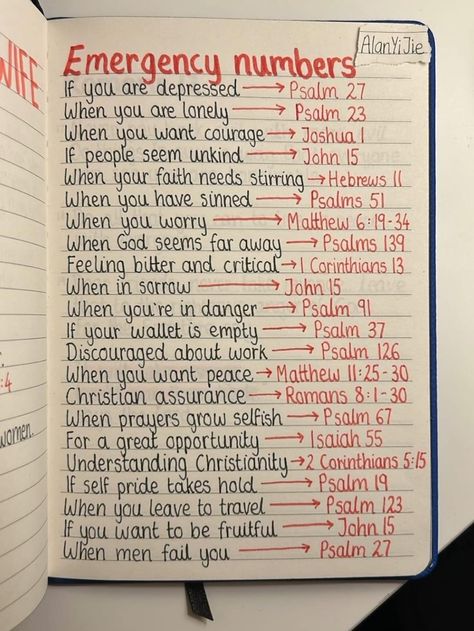 WIFE
AlanYiJie
Emergency numbers
If you are depressed → Psalm 27
When you are lonely → Psalm 23
When you want courage → Joshua 1
If people seem unkind → John 15
When your faith needs stirring → Hebrews 11
When you have sinned → Psalms 51
When you worry → Matthew 6:19-34
When God seems far away → Psalms 139
Feeling bitter and critical → 1 Corinthians 13
When in sorrow → John 15
When you're in danger → Psalm 91
If your wallet is empty → Psalm 37
Discouraged about work → Psalm 126
When you want peace → Matthew 11:25-30
:4
Christian assurance → Romans 8:1-30
When prayers grow selfish → Psalm 67
women.
For a great opportunity → Isaiah 55
Understanding Christianity → 2 Corinthians 5:15
If self pride takes hold → Psalm 19
When you leave to travel → Psalm 123
If you want to be fruitful → John 15
When men fail you → Psalm 27